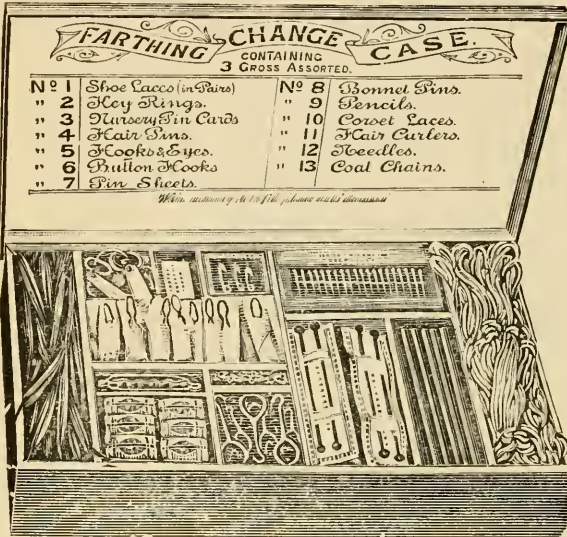 FARTHING CHANGE CASE.
CONTAINING
3 GROSS ASSORTED.
Nº 1 Shoe Laces (in Pairs)
" 2 Key Rings.
" 3 Nursery Pin Cards
" 4 Hair Pins.
" 5 Hooks & Eyes.
" 6 Button Hooks
" 7 Pin Sheets.
Nº 8 Bonnet Pins.
" 9 Pencils.
" 10 Corset Laces.
" 11 Hair Curlers.
" 12 Needles.
" 13 Coat Chains.